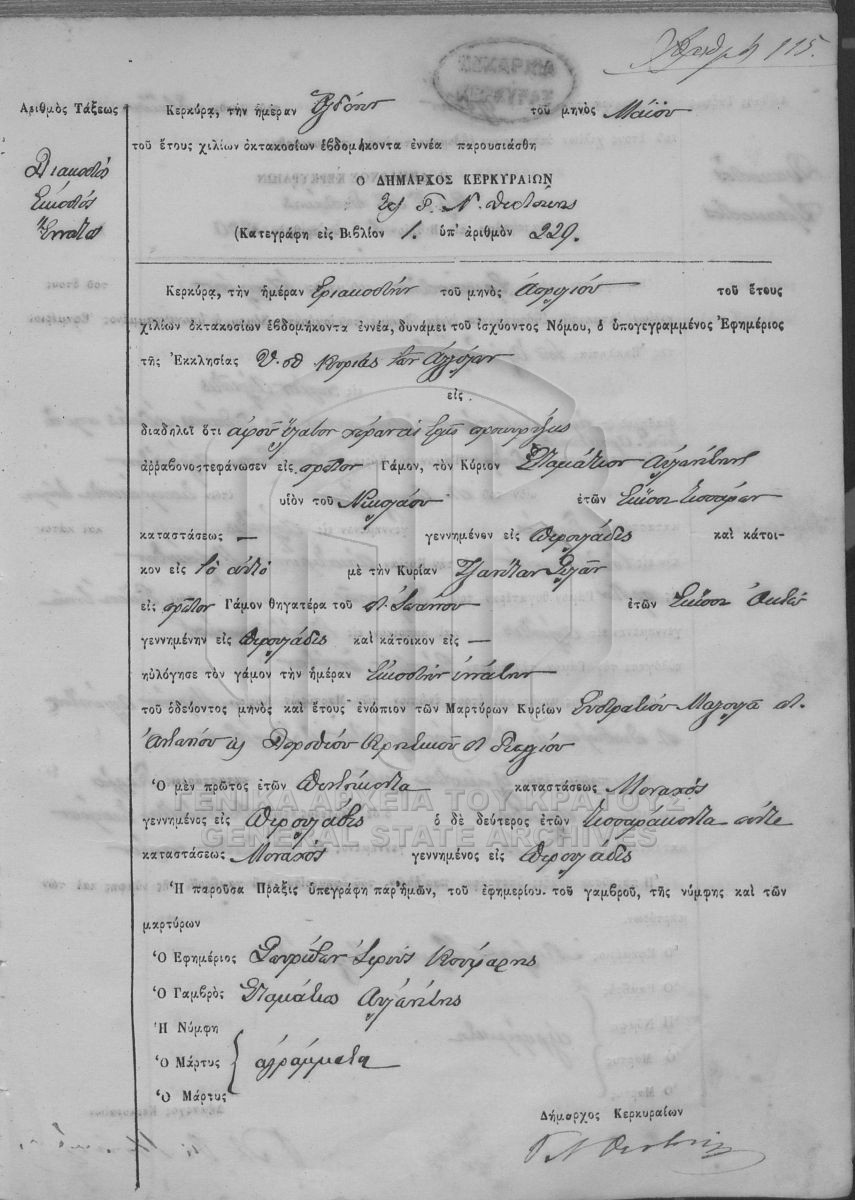 Ἀριθμ. 115.
Ἀριθμὸς Τάξεως
Διακοστὸς
Εἰκοστὸς
Ἔννατος
Κερκύρᾳ, τὴν ἡμέραν τοῦ μηνὸς Μαΐου
τοῦ ἔτους χιλίων ὀκτακοσίων ἑβδομήκοντα ἐννέα παρουσιάσθη
Ο ΔΗΜΑΡΧΟΣ ΚΕΡΚΥΡΑΙΩΝ
Γ. Ν. Θεοτόκης
(Κατεγράφη εἰς Βιβλίον 1. ὑπ' ἀριθμὸν 229.
Κερκύρᾳ, τὴν ἡμέραν τριακοστὴν τοῦ μηνὸς Ἀπριλίου τοῦ ἔτους
χιλίων ὀκτακοσίων ἑβδομήκοντα ἐννέα, δυνάμει τοῦ ἰσχύοντος Νόμου, ὁ ὑπογεγραμμένος Ἐφημέριος
τῆς Ἐκκλησίας Κυρίας τῶν Ἀγγέλων
εἰς
διαδηλοῖ ὅτι ἀφοῦ ἔλαβον χώραν αἱ τρεῖς προκηρύξεις
ἀῤῥαβονοστεφάνωσεν εἰς πρῶτον Γάμον, τὸν Κύριον Σταμάτιον Αὐλανίτην
υἱὸν τοῦ Νικολάου ἐτῶν εἴκοσι τεσσάρων
καταστάσεως — γεννημένον εἰς Περουλάδες καὶ κάτοι-
κον εἰς τὸ αὐτὸ μὲ τὴν Κυρίαν Τζανέταν
εἰς πρῶτον Γάμον θηγατέρα τοῦ Ἰωάννου ἐτῶν εἴκοσι ὀκτὼ
γεννημένην εἰς Περουλάδες καὶ κάτοικον εἰς —
ηὐλόγησε τὸν γάμον τὴν ἡμέραν εἰκοστὴν ἐννάτην
τοῦ ὁδεύοντος μηνὸς καὶ ἔτους ἐνώπιον τῶν Μαρτύρων Κυρίων Εὐστρατίου
Ἀντωνίου Δωροθέου Κρητικοῦ
Ὁ μὲν πρῶτος ἐτῶν πεντήκοντα καταστάσεως Μοναχὸς
γεννημένος εἰς Περουλάδες ὁ δὲ δεύτερος ἐτῶν τεσσαράκοντα πέντε
καταστάσεως Μοναχὸς γεννημένος εἰς Περουλάδες
Ἡ παροῦσα Πρᾶξις ὑπεγράφη παρ' ἡμῶν, τοῦ ἐφημερίου τοῦ γαμβροῦ, τῆς νύμφης καὶ τῶν
μαρτύρων
Ὁ Ἐφημέριος Σπυρίδων Ἱερεὺς
Ὁ Γαμβρὸς Σταμάτιος Αὐλανίτης
Ἡ Νύμφη
Ὁ Μάρτυς ἀγράμματοι
Ὁ Μάρτυς
Δήμαρχος Κερκυραίων
Γ Ν Θεοτόκης
ΓΕΝΙΚΑ ΑΡΧΕΙΑ ΤΟΥ ΚΡΑΤΟΥΣ
GENERAL STATE ARCHIVES